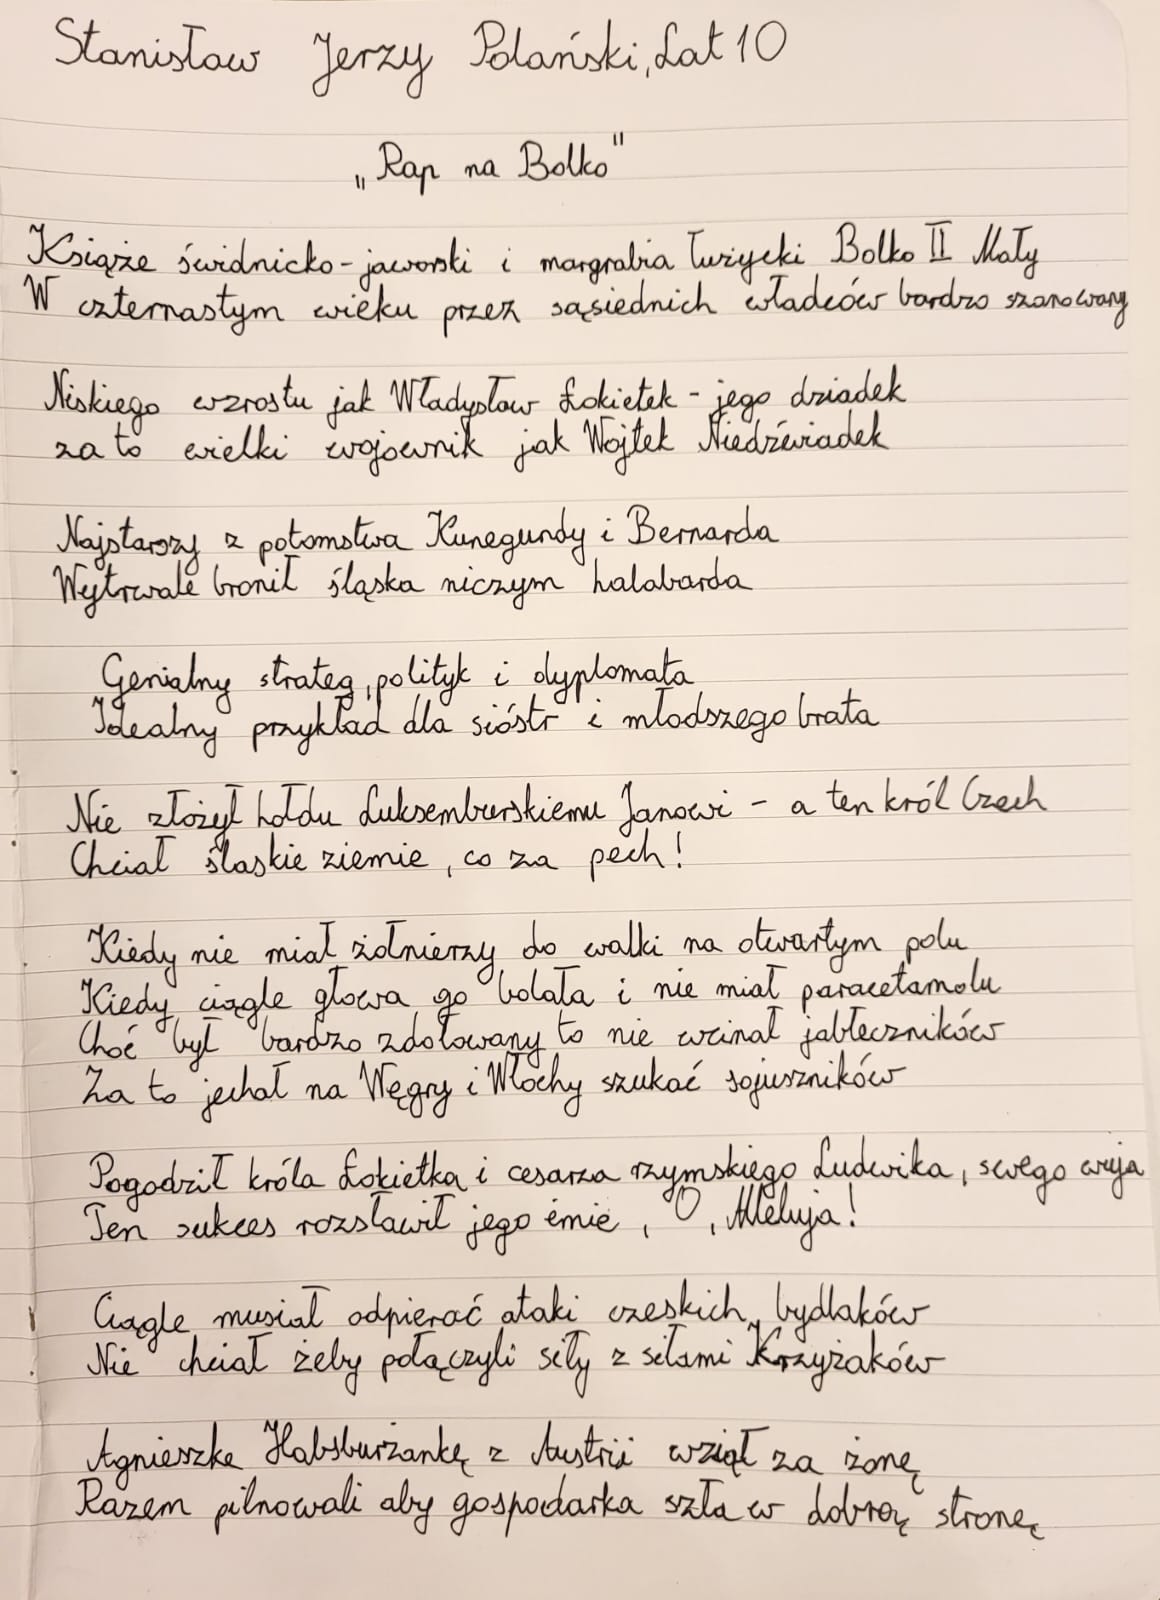 Stanisław Jerzy Polański, Lat 10
„Rap na Bolko"
Książe świdnicko-jaworski i margrabia łużycki Bolko II Mały
W czternastym wieku przez sąsiednich władców bardzo szanowany
Niskiego wzrostu jak Władysław Łokietek - jego dziadek
za to wielki wojownik jak Wojtek Niedźwiadek
Najstarszy z potomstwa Kunegundy i Bernarda
Wytrwale bronił śląska niczym halabarda
Genialny strateg, polityk i dyplomata
Idealny przykład dla sióstr i młodszego brata
Nie złożył hołdu Luksemburskiemu Janowi - a ten król Czech
Chciał śląskie ziemie, co za pech!
Kiedy nie miał żołnierzy do walki na otwartym polu
Kiedy ciągle głowa go bolała i nie miał paracetamolu
Choć był bardzo zdołowany to nie wcinał jabłeczników
Za to jechał na Węgry i Włochy szukać sojuszników
Pogodził króla Łokietka i cesarza rzymskiego Ludwika, swego wuja
Ten sukces rozsławił jego imie, O, Alleluja!
Ciągle musiał odpierać ataki czeskich bydlaków
Nie chciał żeby połączyli siły z siłami Krzyżaków
Agnieszkę Habsburżankę z Austrii wziął za żonę
Razem pilnowali aby gospodarka szła w dobrą stronę